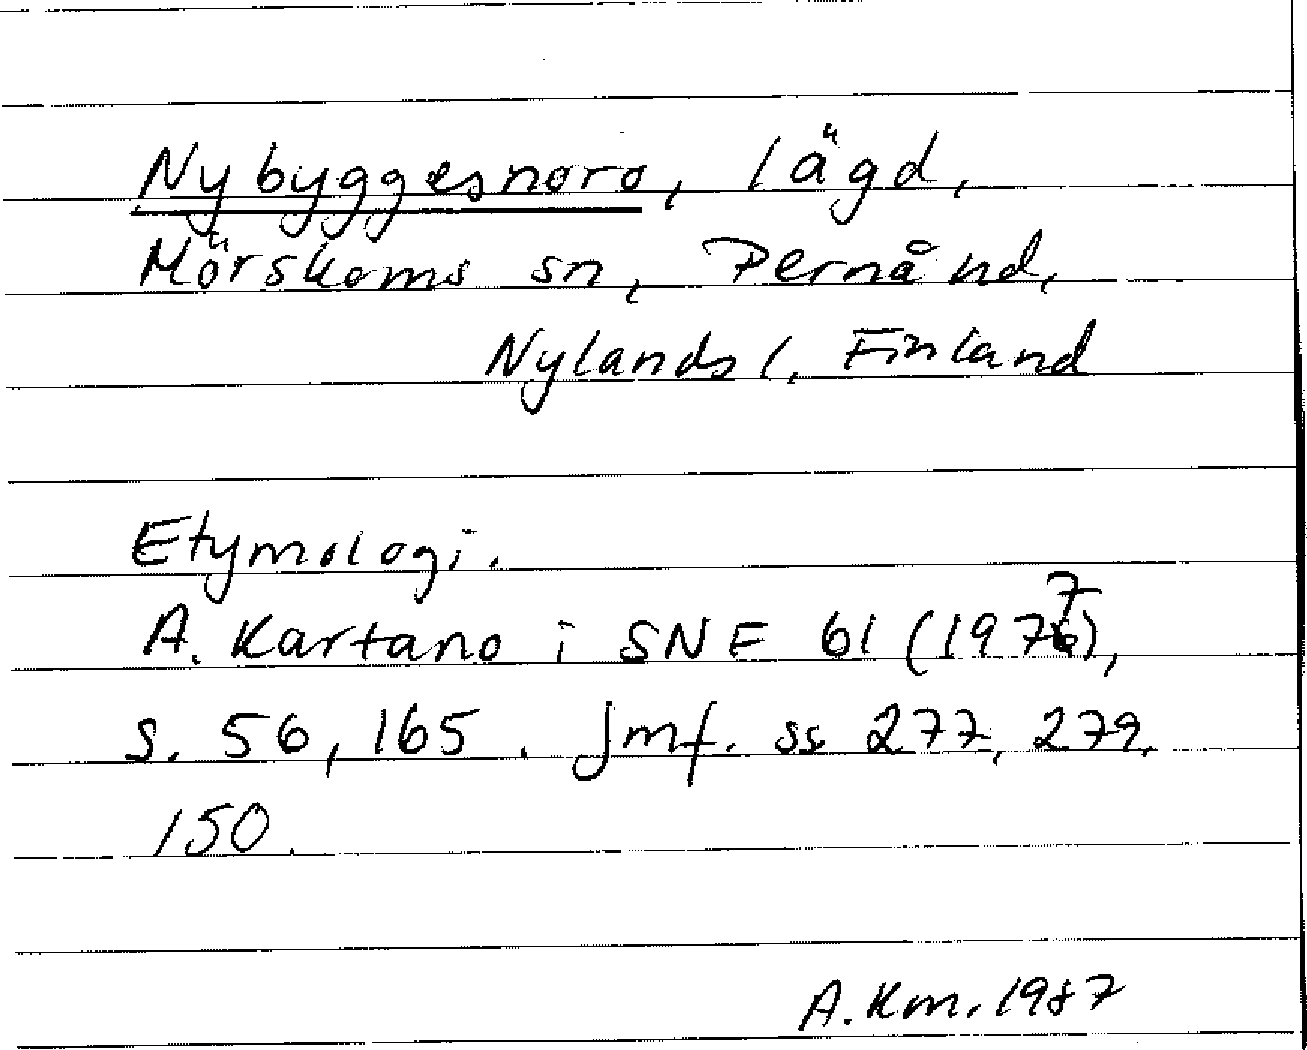 Nybyggesnoro, lägd,
Mörskoms sn, Pernå hd,
Nylands l. Finland
Etymologi.
A. Kartano i SNE 61 (1977),
s. 56, 165. Jmf. ss 277, 279,
150.
A. Km. 1987